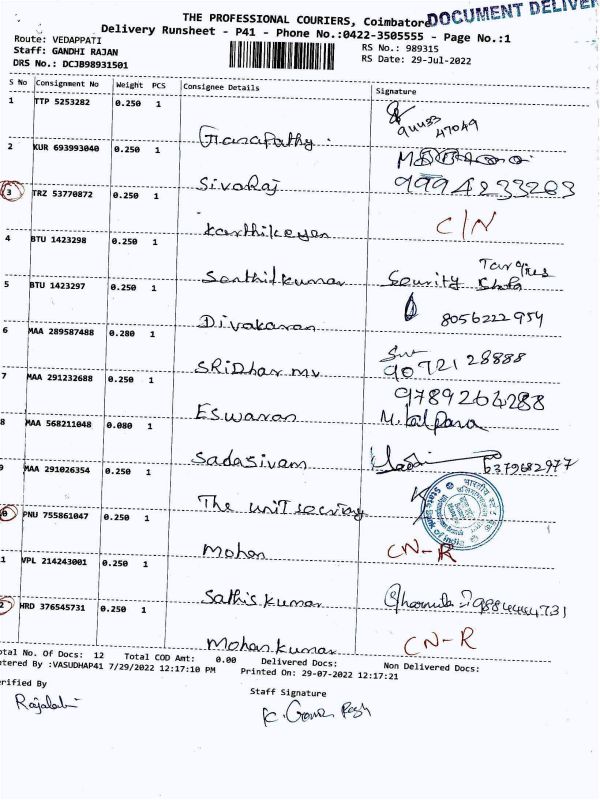 THE PROFESSIONAL COURIERS, Coimbatore
DOCUMENT DELIVER
Delivery Runsheet - P41 - Phone No.:0422-3505555 - Page No.:1
Route: VEDAPPATI
RS No.: 989315
Staff: GANDHI RAJAN
RS Date: 29-Jul-2022
DRS No.: DCJB98931501
S No Consignment No Weight PCS Consignee Details Signature
1 TTP 5253282 0.250 1 Ganapathy 94433 47049
2 KUR 693993040 0.250 1 Sivaraj 9994233283
3 TRZ 53770872 0.250 1 Karthikeyan C/N
4 BTU 1423298 0.250 1 Senthilkumar Security
5 BTU 1423297 0.250 1 Divakaran 8056222954
6 MAA 289587488 0.280 1 SRiDhar mv 9072128888
7 MAA 291232688 0.250 1 Eswaran 9789264288
M. Kalpana
8 MAA 568211048 0.080 1 Sadasivam 6379682977
9 MAA 291026354 0.250 1 The unit security
State Bank of India
0 PNU 755861047 0.250 1 Mohan CN-R
1 VPL 214243001 0.250 1 Sathis kumar 9884444731
2 HRD 376545731 0.250 1 Mohan kumar CN-R
otal No. Of Docs: 12 Total COD Amt: 0.00 Delivered Docs: Non Delivered Docs:
ntered By :VASUDHAP41 7/29/2022 12:17:10 PM Printed On: 29-07-2022 12:17:21
erified By
Staff Signature